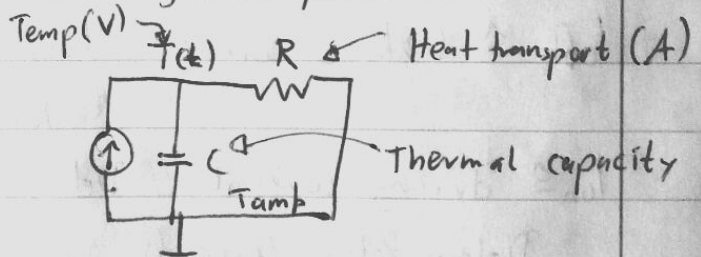 Temp(V)
T(t)
R
Heat transport (A)
C
Thermal capacity
Tamb